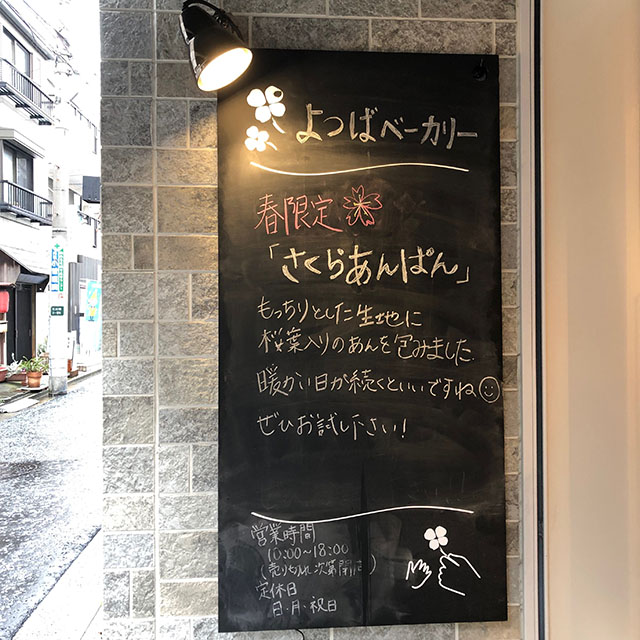 よつばベーカリー
春限定
「さくらあんぱん」
もっちりとした生地に
桜葉入りのあんを包みました
暖かい日が続くといいですね
ぜひお試し下さい!
営業時間
10:00~18:00
(売り切れ次第閉店)
定休日
日・月・祝日